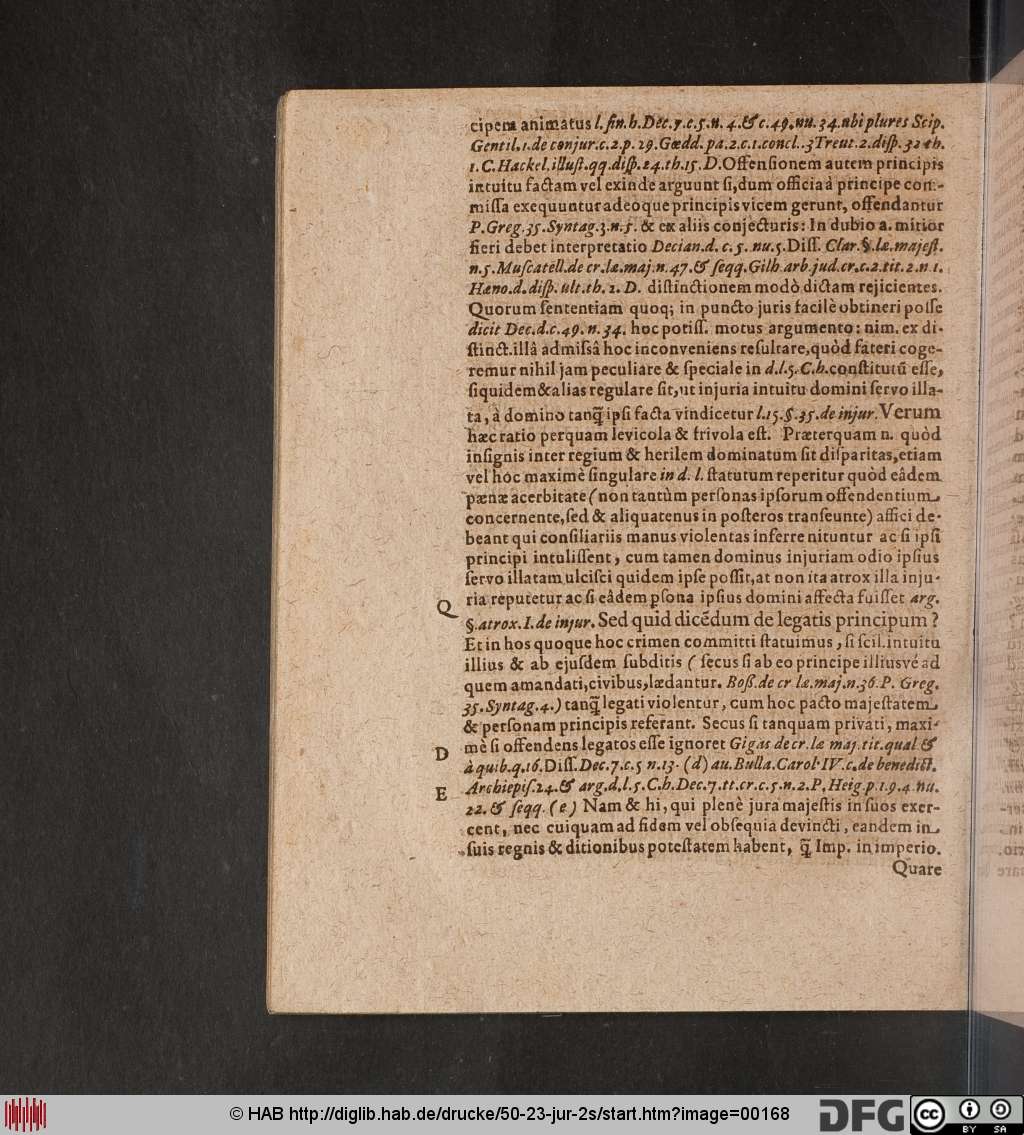 cipem animatus l. fin. h. Dec. 7. c. 5. n. 4. & c. 49. nu. 34. ubi plures Scip.
Gentil. 1. de conjur. c. 2. p. 29. Gœdd. pa. 2. c. 1. concl.. 3 Treut. 2. disp. 32 th.
1. C. Hackel. illust. qq. disp. 24. th. 15. D. Offensionem autem principis
intuitu factam vel exinde arguunt si, dum officia à principe com-
missa exequuntur adeoque principis vicem gerunt, offendantur
P. Greg. 35. Syntag. 3. n. 5. & ex aliis conjecturis: In dubio a. mitior
fieri debet interpretatio Decian. d. c. 5. nu. 5. Diss. Clar. §. læ. majest.
n. 5. Muscatell. de cr. læ. maj. n. 47. & seqq. Gilh. arb. jud. cr. c. 2. tit. 2. n 1.
Hæno. d. disp. ult. th. 2. D. distinctionem modò dictam rejicientes.
Quorum sententiam quoq; in puncto juris facilè obtineri posse
dicit Dec. d. c. 49. n. 34. hoc potiss. motus argumento: nim. ex di-
stinct. illâ admissâ hoc inconveniens resultare, quòd fateri coge-
remur nihil jam peculiare & speciale in d. l. 5. C. h. constitutū esse,
siquidem & alias regulare sit, ut injuria intuitu domini servo illa-
ta, à domino tanq̃ ipsi facta vindicetur l. 15. §. 35. de injur. Verum
hæc ratio perquam levicola & frivola est. Præterquam n. quòd
insignis inter regium & herilem dominatum sit disparitas, etiam
vel hoc maximè singulare in d. l. statutum reperitur quòd eâdem
pænæ acerbitate (non tantùm personas ipsorum offendentium
concernente, sed & aliquatenus in posteros transeunte) affici de-
beant qui consiliariis manus violentas inferre nituntur ac si ipsi
principi intulissent, cum tamen dominus injuriam odio ipsius
servo illatam ulcisci quidem ipse possit, at non ita atrox illa inju-
ria reputetur ac si eâdem psona ipsius domini affecta fuisset arg.
Q
§. atrox. I. de injur. Sed quid dicēdum de legatis principum?
Et in hos quoque hoc crimen committi statuimus, si scil. intuitu
illius & ab ejusdem subditis (secus si ab eo principe illiusvé ad
quem amandati, civibus, lædantur. Boß. de cr læ. maj. n. 36. P. Greg.
35. Syntag. 4.) tanq̃ legati violentur, cum hoc pacto majestatem
& personam principis referant. Secus si tanquam privati, maxi-
mè si offendens legatos esse ignoret Gigas de cr. læ maj. tit. qual &
D
à quib. q. 16. Diss. Dec. 7. c. 5 n. 13. (d) au. Bulla. Carol. IV. c. de benedict.
Archiepis. 24. & arg. d. l. 5. C. h. Dec. 7. tt. cr. c. 5. n. 2. P. Heig. p. 1. 9. 4. nu.
E
22. & seqq. (e) Nam & hi, qui plenè jura majestis in suos exer-
cent, nec cuiquam ad fidem vel obsequia devincti, eandem in
suis regnis & ditionibus potestatem habent, q̃ Imp. in imperio.
Quare
© HAB http://diglib.hab.de/drucke/50-23-jur-2s/start.htm?image=00168
DFG
cc
BY SA